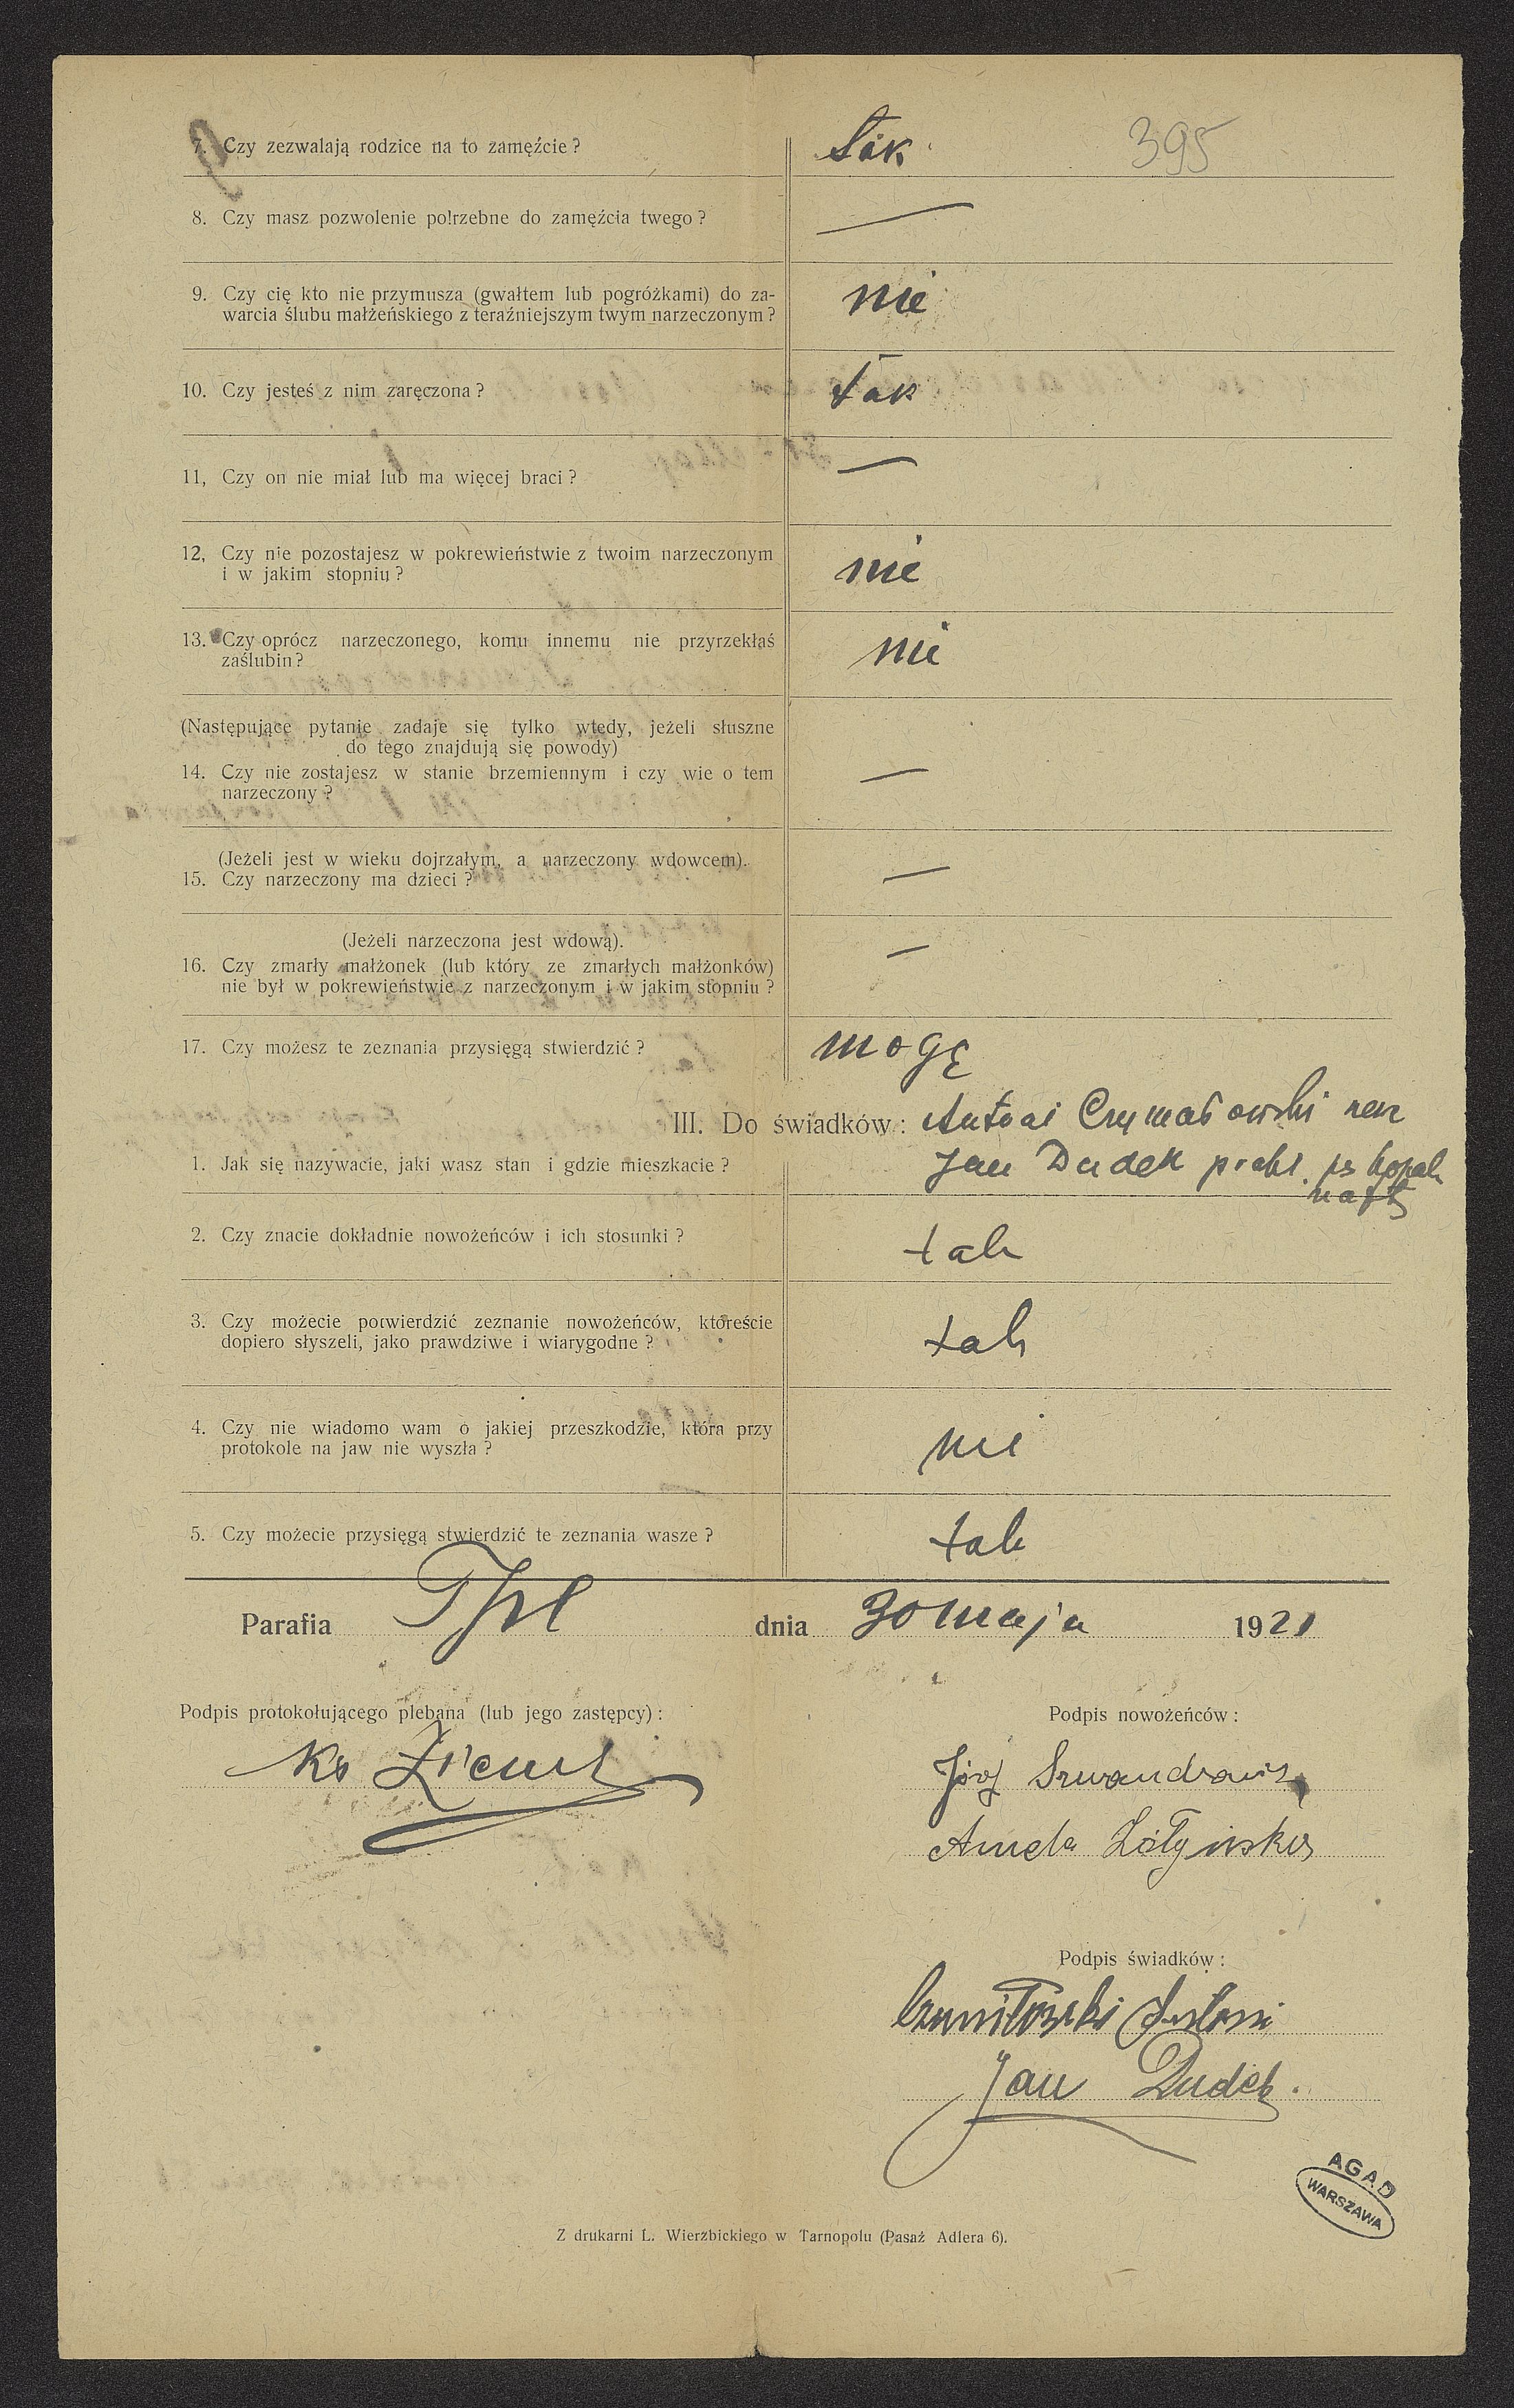 395
7. Czy zezwalają rodzice na to zamęźcie? Tak
8. Czy masz pozwolenie potrzebne do zamęźcia twego? —
9. Czy cię kto nie przymusza (gwałtem lub pogróżkami) do za-
warcia ślubu małżeńskiego z teraźniejszym twym narzeczonym? nie
10. Czy jesteś z nim zaręczona? tak
11, Czy on nie miał lub ma więcej braci? —
12, Czy nie pozostajesz w pokrewieństwie z twoim narzeczonym
i w jakim stopniu? nie
13. Czy oprócz narzeczonego, komu innemu nie przyrzekłaś
zaślubin? nie
(Następujące pytanie zadaje się tylko wtedy, jeżeli słuszne
do tego znajdują się powody)
14. Czy nie zostajesz w stanie brzemiennym i czy wie o tem
narzeczony? —
(Jeżeli jest w wieku dojrzałym, a narzeczony wdowcem).
15. Czy narzeczony ma dzieci? —
(Jeżeli narzeczona jest wdową).
16. Czy zmarły małżonek (lub który ze zmarłych małżonków)
nie był w pokrewieństwie z narzeczonym i w jakim stopniu? —
17. Czy możesz te zeznania przysięgą stwierdzić? mogę
III. Do świadków: Antoni
1. Jak się nazywacie, jaki wasz stan i gdzie mieszkacie? Jan Dudek
2. Czy znacie dokładnie nowożeńców i ich stosunki? tak
3. Czy możecie potwierdzić zeznanie nowożeńców, któreście
dopiero słyszeli, jako prawdziwe i wiarygodne? tak
4. Czy nie wiadomo wam o jakiej przeszkodzie, która przy
protokole na jaw nie wyszła? nie
5. Czy możecie przysięgą stwierdzić te zeznania wasze? tak
Parafia dnia 30 maja 1921
Podpis protokołującego plebana (lub jego zastępcy):
Ks
Podpis nowożeńców:
Józef
Aniela
Podpis świadków:
Antoni
Jan Dudek.
AGAD
WARSZAWA
Z drukarni L. Wierzbickiego w Tarnopolu (Pasaż Adlera 6).